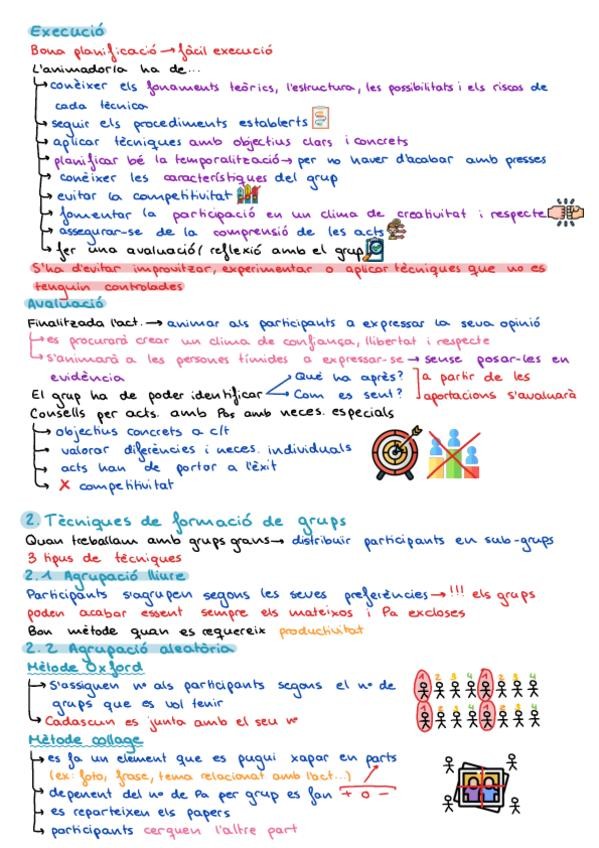 Execució
Bona planificació → fàcil execució
L'animador/a ha de...
conèixer els fonaments teòrics, l'estructura, les possibilitats i els riscos de
cada tècnica
seguir els procediments establerts
aplicar tècniques amb objectius clars i concrets
planificar bé la temporalització → per no haver d'acabar amb presses
conèixer les característiques del grup
evitar la competitivitat
fomentar la participació en un clima de creativitat i respecte
assegurar-se de la comprensió de les acts
fer una avaluació/reflexió amb el grup
S'ha d'evitar improvitzar, experimentar o aplicar tècniques que no es
tenguin controlades
Avaluació
Finalitzada l'act. → animar als participants a expressar la seva opinió
es procurarà crear un clima de confiança, llibertat i respecte
s'animarà a les persones tímides a expressar-se → sense posar-les en
evidència
El grup ha de poder identificar
Què ha après?
Com es sent?
a partir de les
aportacions s'avaluarà
Consells per acts. amb Pas amb neces. especials
objectius concrets a c/t
valorar diferències i neces. individuals
acts han de portar a l'èxit
X competitivitat
2. Tècniques de formació de grups
Quan treballam amb grups grans → distribuir participants en sub-grups
3 tipus de tècniques
2.1 Agrupació lliure
Participants s'agrupen segons les seves preferències → !!! els grups
poden acabar essent sempre els mateixos i Pa excloses
Bon mètode quan es requereix productivitat
2.2 Agrupació aleatòria
Mètode Oxford
S'assignen nº als participants segons el nº de
grups que es vol tenir
Cadascun es junta amb el seu nº
1 2 3 4 1 2 3 4
1 2 3 4 1 2 3 4
Mètode collage
es fa un element que es pugui xapar en parts
(ex: foto, frase, tema relacionat amb l'act...)
depenent del nº de Pa per grup es fan + o -
es reparteixen els papers
participants cerquen l'altre part